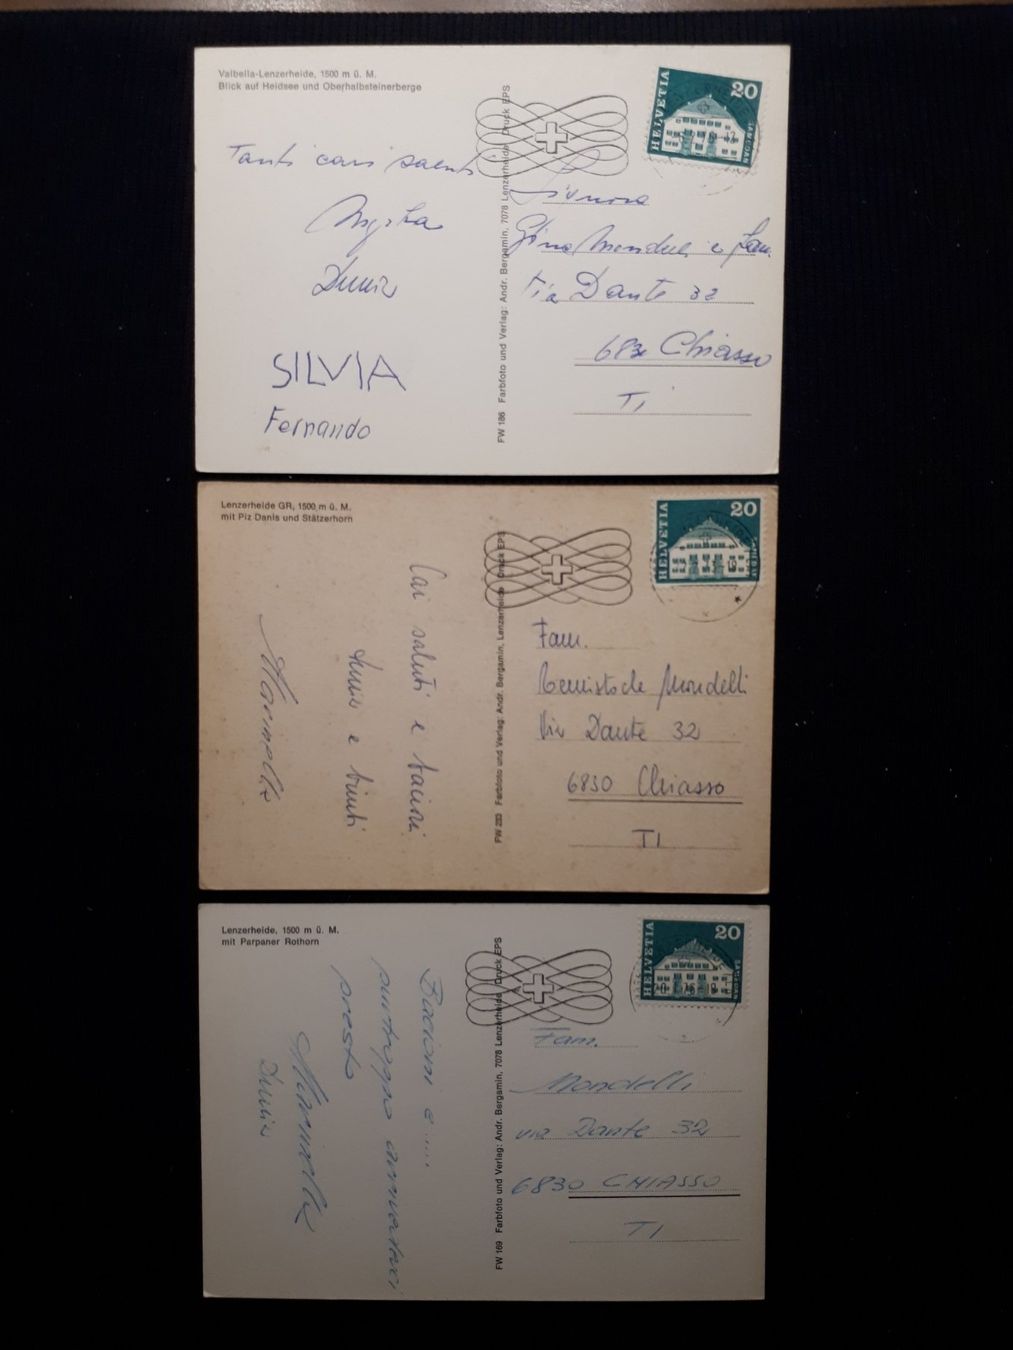 Valbella-Lenzerheide, 1500 m ü. M.
Blick auf Heidsee und Oberhalbsteinerberge
Tanti cari saluti
Dunia
SILVIA
Fernando
FW 186 Farbfoto und Verlag: Andr. Bergamin, 7078 Lenzerheide Druck EPS
HELVETIA
20
SAMEDAN
Signora
Gina Mondelli e Fam.
Via Dante 32
6830 Chiasso
TI
Lenzerheide GR, 1500 m ü. M.
mit Piz Danis und Stätzerhorn
Cari saluti e bacioni
Dunia e
Marinella
FW 233 Farbfoto und Verlag: Andr. Bergamin, Lenzerheide Druck EPS
HELVETIA
20
SAMEDAN
Fam.
Temistocle Mondelli
Via Dante 32
6830 Chiasso
TI
Lenzerheide, 1500 m ü. M.
mit Parpaner Rothorn
Bacioni e .....
purtroppo arrivederci
presto
Marinella
Dunia
FW 169 Farbfoto und Verlag: Andr. Bergamin, 7078 Lenzerheide Druck EPS
HELVETIA
20
SAMEDAN
Fam.
Mondelli
via Dante 32
6830 CHIASSO
TI